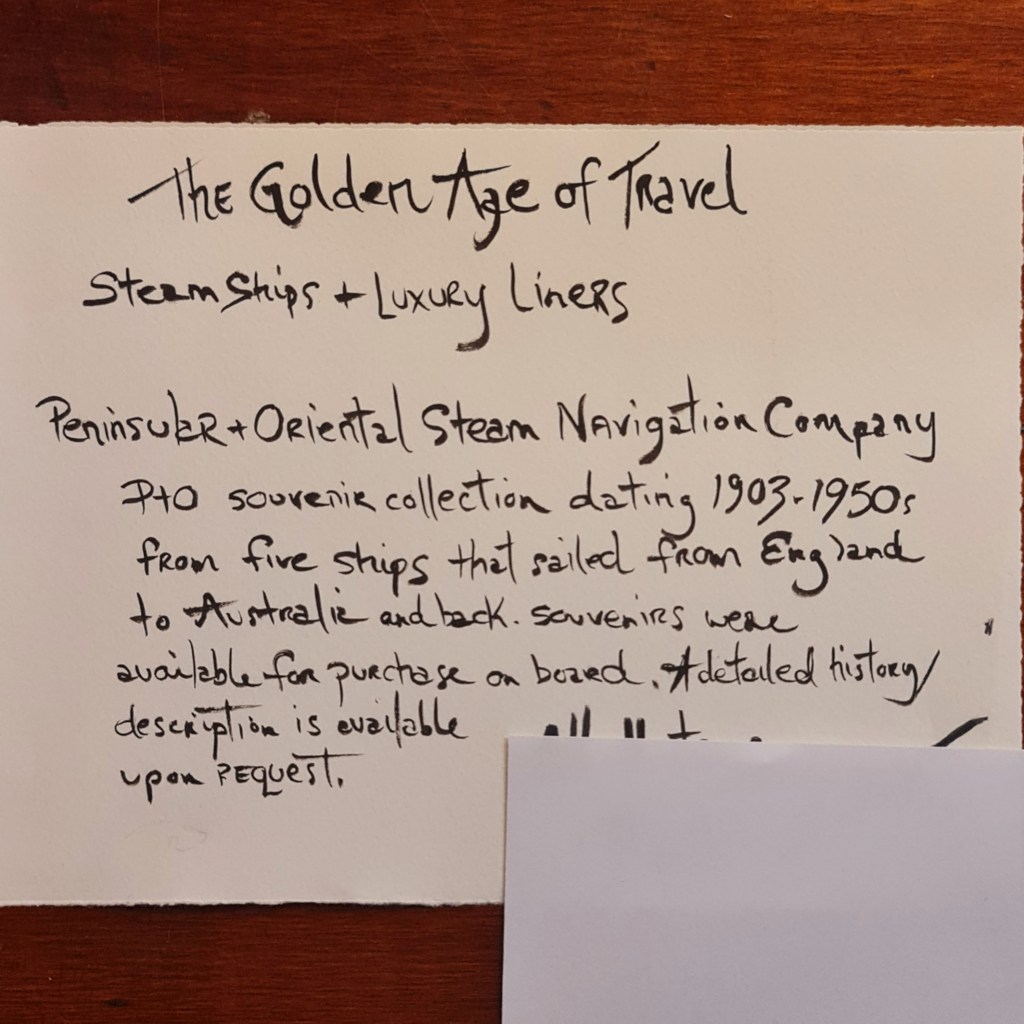 The Golden Age of Travel
Steam Ships + Luxury Liners
Peninsular + Oriental Steam Navigation Company
P+O souvenir collection dating 1903-1950s
from five ships that sailed from England
to Australia and back. Souvenirs were
available for purchase on board. A detailed history/
description is available
upon request.